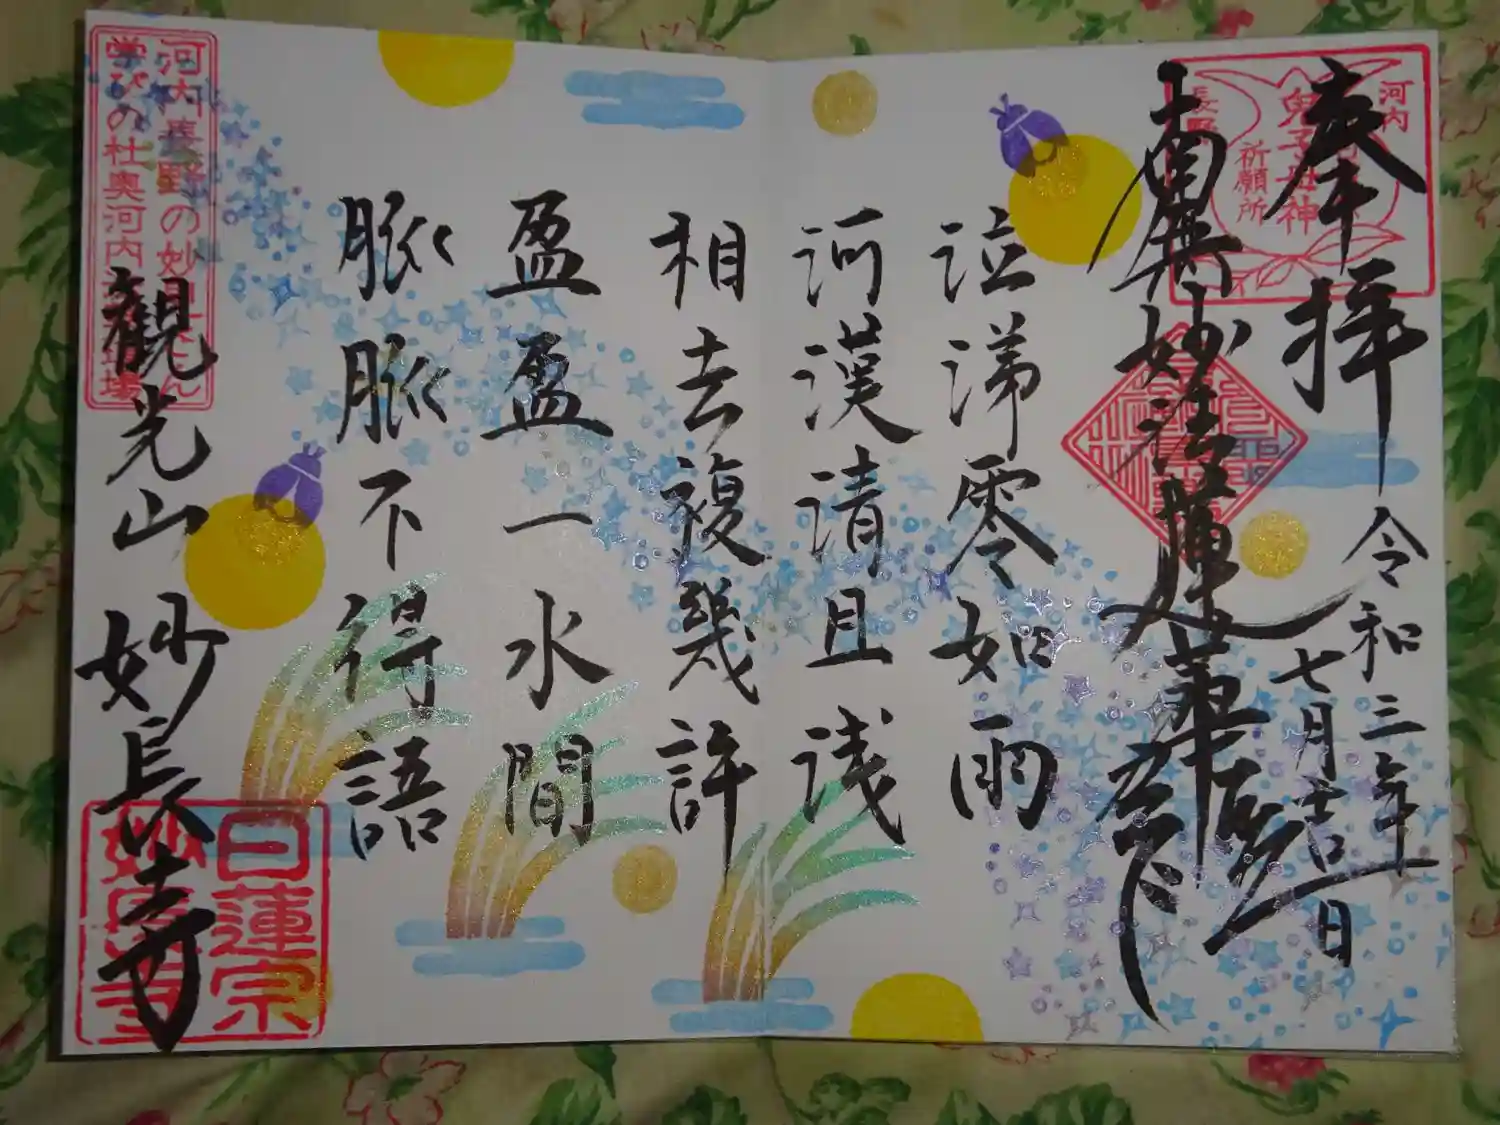 奉拝
令和三年
七月吉日
河内
長野
鬼子母神
祈願所
南無妙法蓮華経
泣涕零如雨
河漢清且浅
相去複幾許
盈盈一水間
脈脈不得語
河内長野の妙
学びの杜奥河内
観光山 妙長寺
日蓮宗
妙長寺